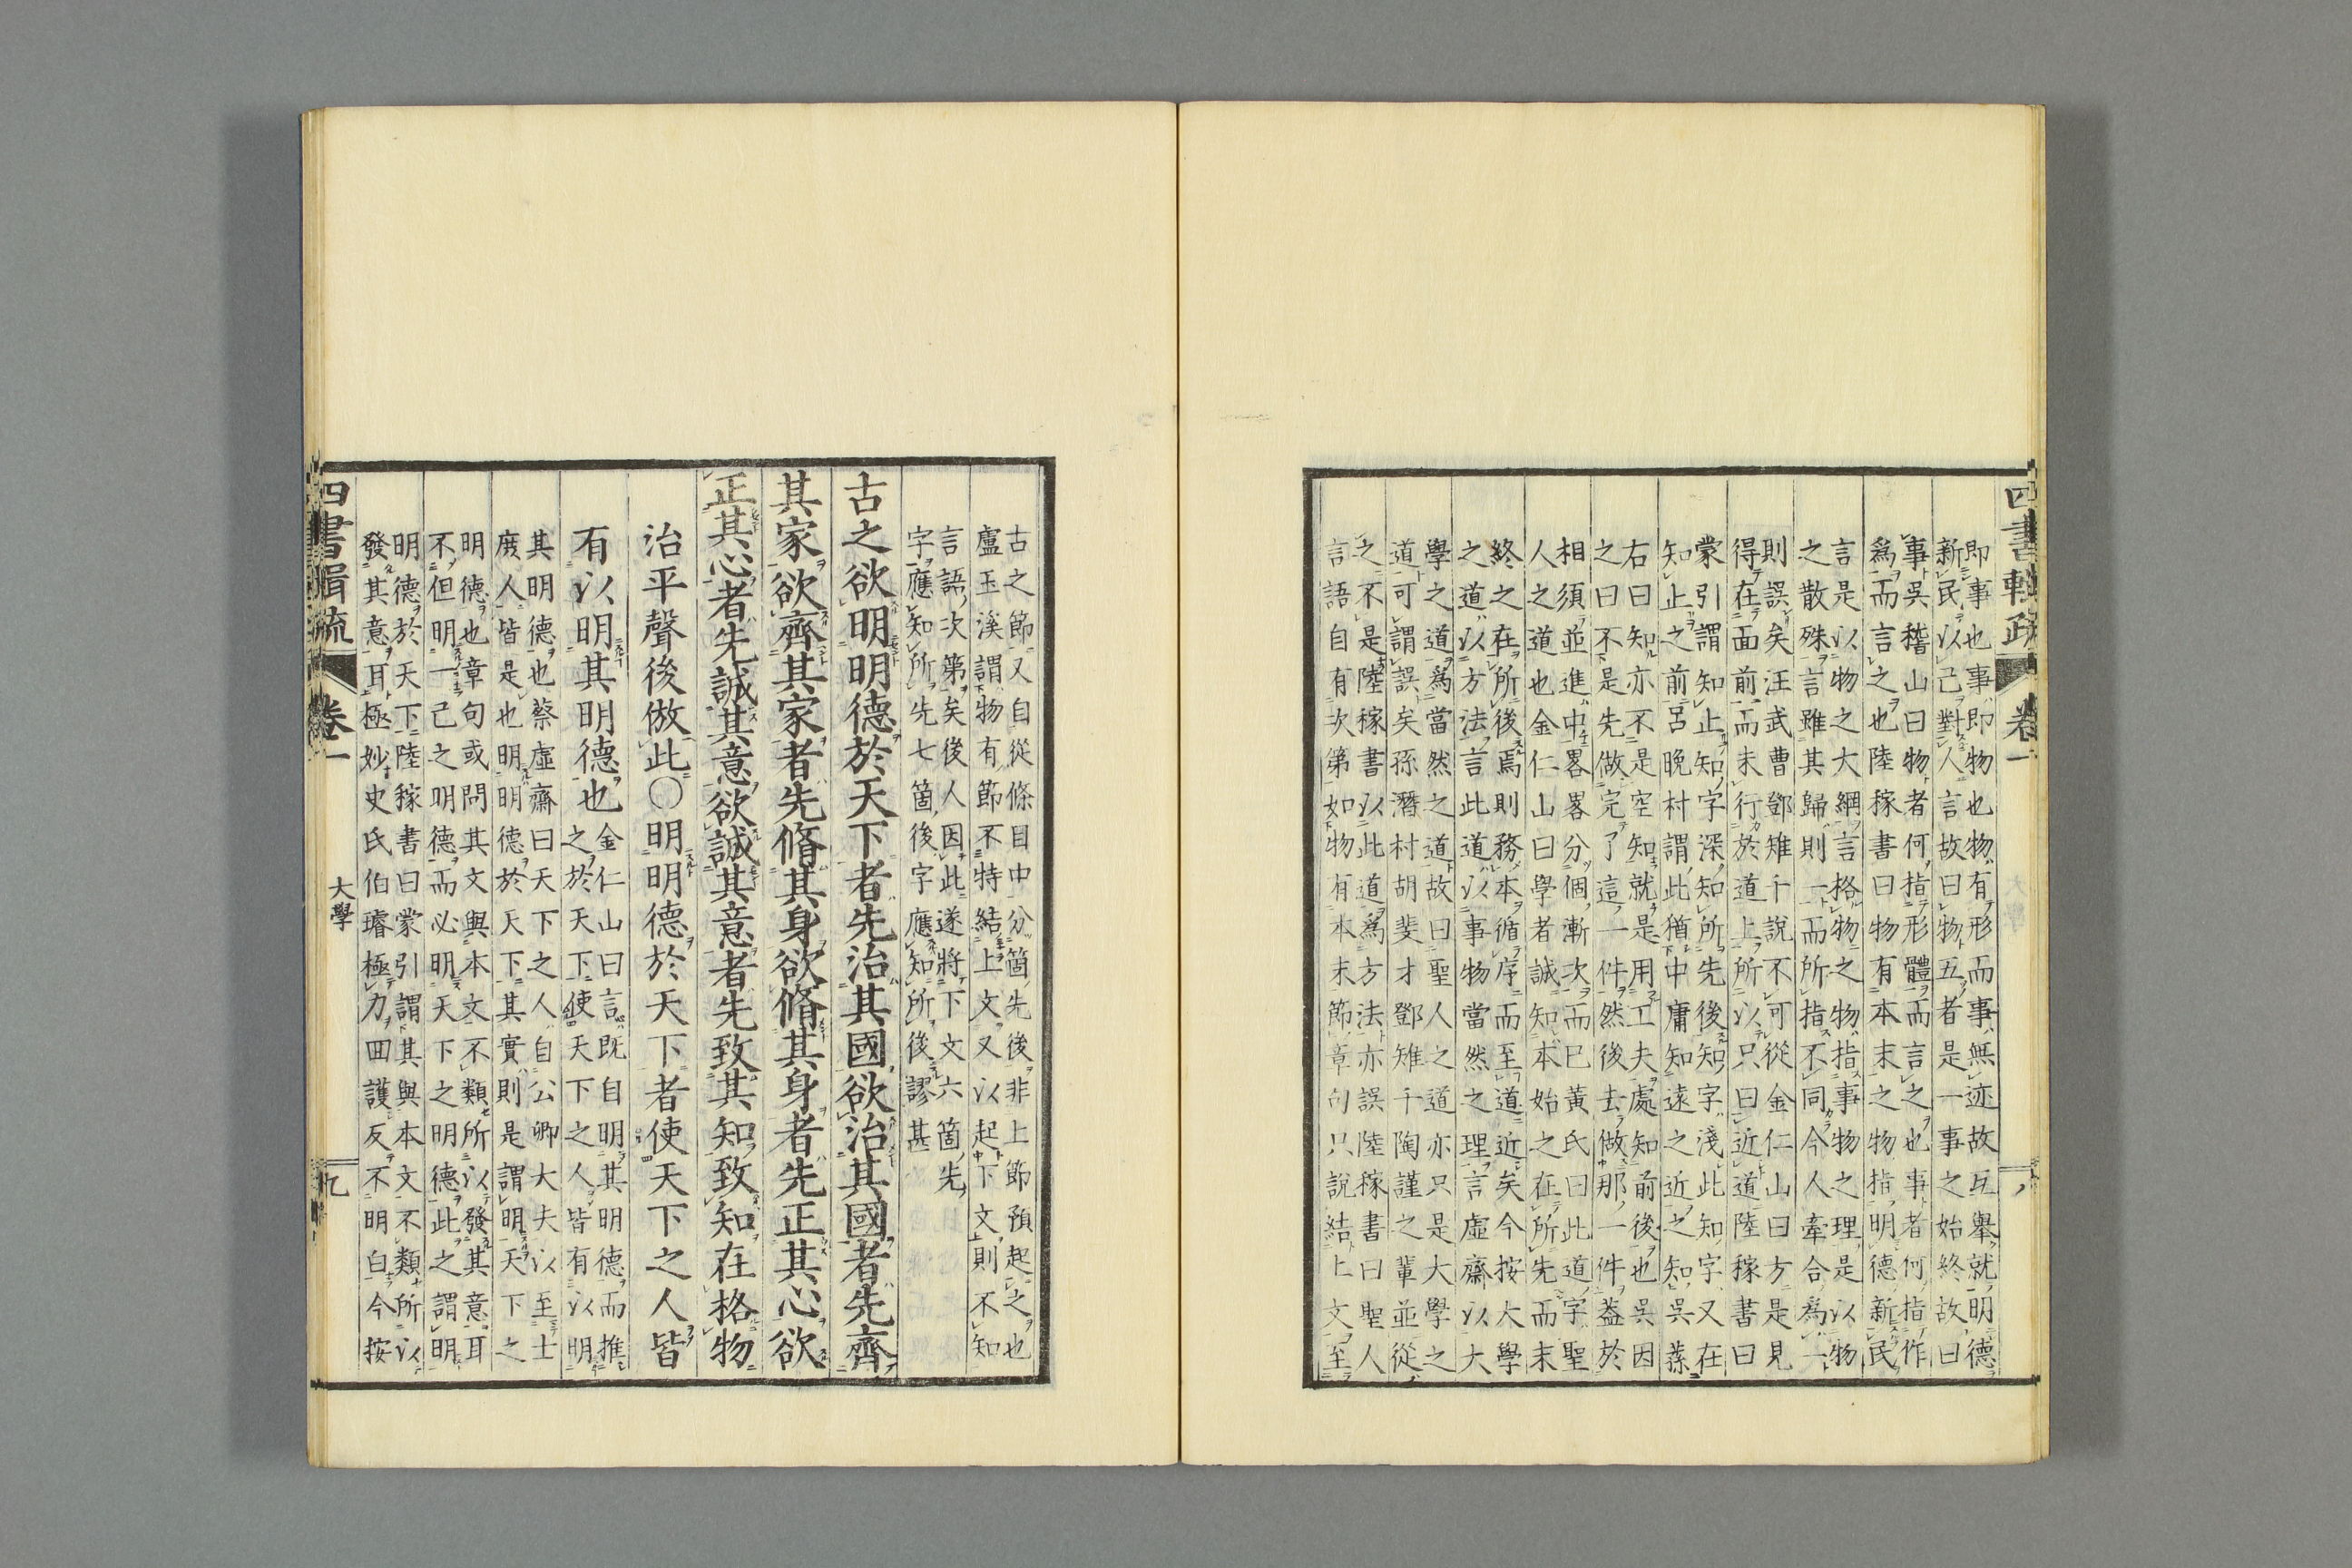 四書輯疏 卷一
即事也事即物也物有形而事無迹故互舉就明德
新民以己對人言故曰物五者是一事之始終故曰
事吳稽山曰物者何指形體而言之也事者何指作
爲而言之也陸稼書曰物有本末之物指明德新民
言是以物之大綱言格物之物指事物之理是以物
之散殊言雖其歸則一而所指不同今人牽合爲一
則誤矣汪武曹鄧雉千說不可從金仁山曰方是見
得在面前而未行於道上所以只曰近道陸稼書曰
蒙引謂知止知字深知所先後知字淺此知字又在
知止之前呂晚村謂此猶中庸知遠之近之知吳蓀
右曰知亦不是空知就是用工夫處知前後也吳因
之曰不是先做完了這一件然後去做那一件葢於
相須並進中畧畧分個漸次而已黃氏曰此道字聖
人之道也金仁山曰學者誠知本始之在所先而末
終之在所後焉則務本循序而至道近矣今按大學
之道以方法言此道以事物當然之理言虛齋以大
學之道爲當然之道故曰聖人之道亦只是大學之
道可謂誤矣孫潛村胡斐才鄧雉千陶謹之輩並從
之不是陸稼書以此道爲方法亦誤陸稼書曰聖人
言語自有次第如物有本末節章句只說結上文至
古之節又自從條目中分箇先後非上節預起之也
盧玉溪謂物有節不特結上文又以起下文則不知
言語次第矣後人因此遂將下文六箇先
字應知所先七箇後字應知所後謬甚
古之欲明明德於天下者先治其國欲治其國者先齊
其家欲齊其家者先脩其身欲脩其身者先正其心欲
正其心者先誠其意欲誠其意者先致其知致知在格物
治平聲後倣此〇明明德於天下者使天下之人皆
有以明其明德也
金仁山曰言既自明其明德而推
之於天下使天下之人皆有以明
其明德也蔡虛齋曰天下之人自公卿大夫以至士
庻人皆是也明明德於天下其實則是謂明天下之
明德也章句或問其文與本文不類所以發其意耳
不但明一己之明德而必明天下之明德此之謂明
明德於天下陸稼書曰蒙引謂其與本文不類所以
發其意耳極妙史氏伯璿極力回護反不明白今按
四書輯疏 卷一 大學 九